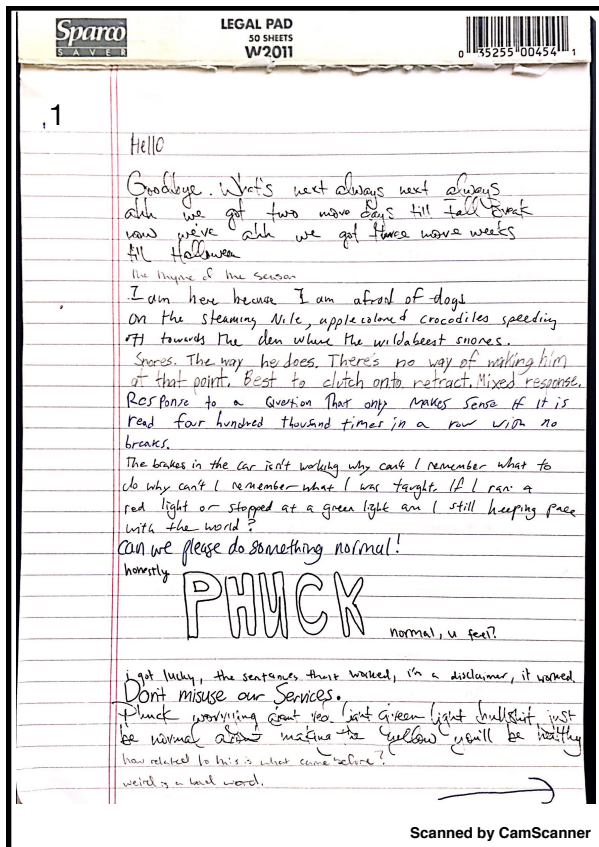 Sparco
SAVER
LEGAL PAD
50 SHEETS
W2011
0 35255 00454 1
1
Hello
Goodbye. What's next always next always
ahh we got two more days till Fall Break
now we've ahh we got three more weeks
till Halloween
the rhyme of the season
I am here because I am afraid of dogs
on the steaming Nile, apple colored crocodiles speeding
off towards the den where the wildabeest snores.
Snores. The way he does. There's no way of making him
at that point. Best to clutch onto retract. Mixed response.
Response to a Question That only makes Sense if it is
read four hundred thousand times in a row with no
breaks.
The brakes in the car isn't working why can't I remember what to
do why can't I remember what I was taught. If I ran a
red light or stopped at a green light am I still keeping pace
with the world?
can we please do something normal!
honestly
PHUCK
normal, u feel?
i got lucky, the sentances that worked, i'm a disclaimer, it worked
Don't misuse our Services.
Phuck worrying about red light Green light bullshit, just
be normal about making the yellow you'll be healthy
how related to this is what came before?
weird is a bad word.
Scanned by CamScanner